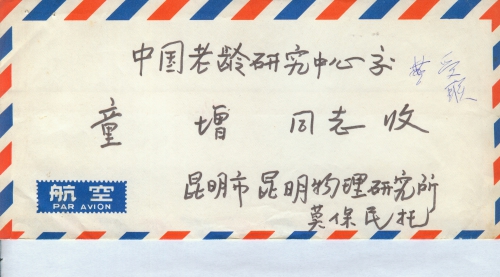 中国老龄研究中心
童增 同志 收
航空
PAR AVION
昆明市昆明物理研究所
莫保民托